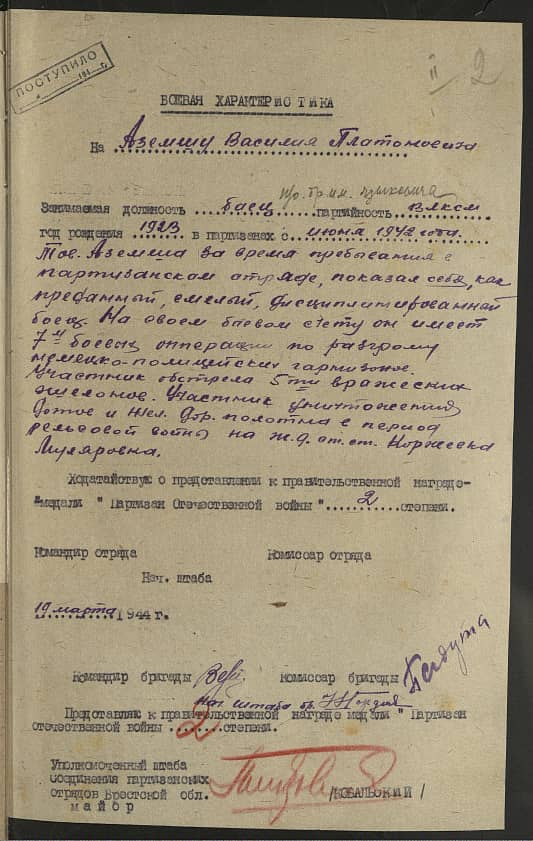 ПОСТУПИЛО
194 г.
II 2
БОЕВАЯ ХАРАКТЕРИСТИКА
На Аземшу Василия Платоновича
п/о. бр. им.
Занимаемая должность боец партийность ВЛКСМ
год рождения 1923 в партизанах с июня 1942 года.
Тов. Аземша за время пребывания в
партизанском отряде, показал себя, как
преданный, смелый, дисциплинированный
боец. На своем боевом счету он имеет
7 боевых операций по разгрому
немецко-полицейских гарнизонов.
Участник обстрела 5ти вражеских
эшелонов. Участник уничтожения
дотов и жел. дор. полотна в период
рельсовой войны на ж.д. от. ст.
Ходатайствую о представлении к правительственной награде-
"медали " Партизан Отечественной войны " 2 степени.
Командир отряда Комиссар отряда
Нач. штаба
19 марта 1944 г.
Командир бригады Комиссар бригады
Нач штаба бр.
Представляю к правительственной награде медали " Партизан
отечественной войны 2 степени.
Уполномоченный штаба
соединения партизанских
отрядов Брестской обл.
майор /КОВАЛЬСКИЙ/